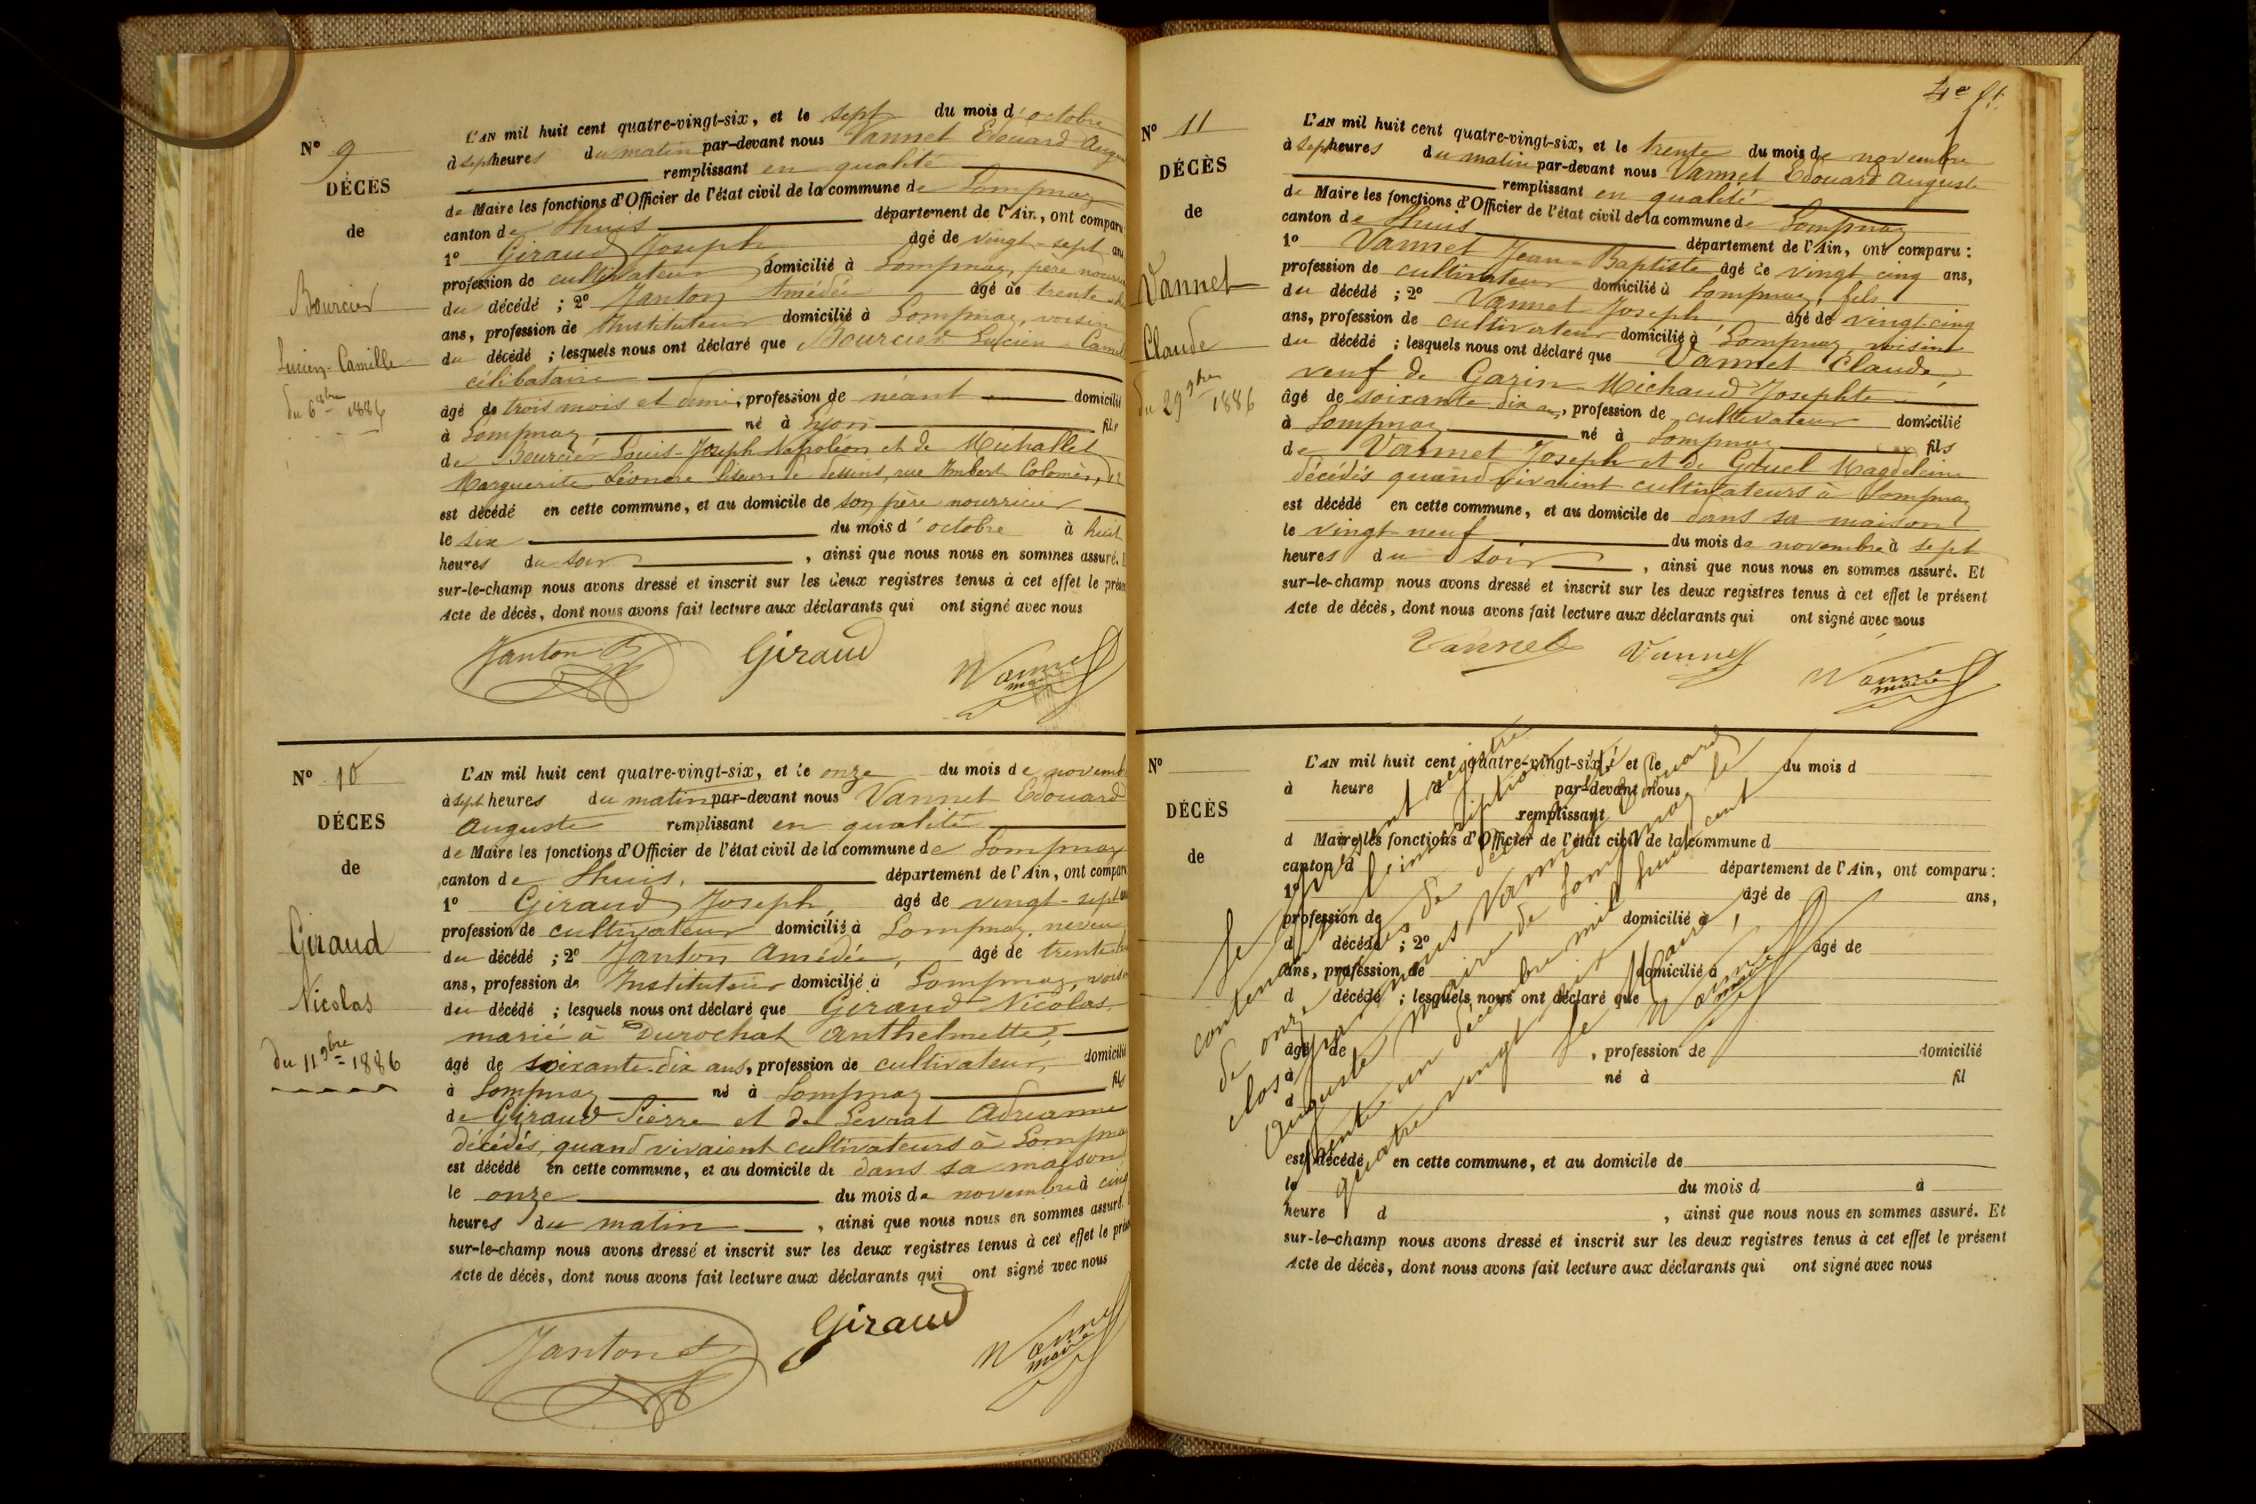 N° 9
DÉCÈS
de
Bourcier
Lucien-Camille
du 6 8bre 1886
L'AN mil huit cent quatre-vingt-six, et le sept du mois d'octobre
à sept heures du matin par-devant nous Vannet Edouard Augus
remplissant en qualité
de Maire les fonctions d'Officier de l'état civil de la commune de Lompnaz
canton de Lhuis département de l'Ain, ont comparu
1° Giraud Joseph âgé de vingt-sept ans
profession de cultivateur domicilié à Lompnaz, père nourricier
du décédé ; 2° Janton Amédée âgé de trente
ans, profession de Instituteur domicilié à Lompnaz, voisin
du décédé ; lesquels nous ont déclaré que Bourcier Lucien Camil
célibataire
âgé de trois mois et demi, profession de néant domicilié
à Lompnaz né à Lyon fils
de Bourcier Louis-Joseph Napoléon et de Michallet
Marguerite Léonore liseurs de dessins, rue Imbert Colomès, 12
est décédé en cette commune, et au domicile de son père nourricier
le six du mois d'octobre à huit
heures du soir, ainsi que nous nous en sommes assuré.
sur-le-champ nous avons dressé et inscrit sur les deux registres tenus à cet effet le prése
Acte de décès, dont nous avons fait lecture aux déclarants qui ont signé avec nous
Janton Giraud Vannet
maire
N° 10
DÉCES
de
Giraud
Nicolas
du 11 9bre 1886
L'AN mil huit cent quatre-vingt-six, et le onze du mois de novemb
à sept heures du matin par-devant nous Vannet Edouard
Auguste remplissant en qualité
de Maire les fonctions d'Officier de l'état civil de la commune de Lompnaz
canton de Lhuis, département de l'Ain, ont comparu
1° Giraud Joseph, âgé de vingt-sept ans
profession de cultivateur domicilié à Lompnaz, neveu
du décédé ; 2° Janton Amédée, âgé de trente
ans, profession de Instituteur domicilié à Lompnaz, voisin
du décédé ; lesquels nous ont déclaré que Giraud Nicolas
marié à Durochat Anthelmette,
âgé de soixante-dix ans, profession de cultivateur domicilié
à Lompnaz né à Lompnaz fils
de Giraud Pierre et de Levrat Adrianne
décédés, quand vivaient cultivateurs à Lompna
est décédé en cette commune, et au domicile de dans sa maison
le onze du mois de novembre à cinq
heures du matin, ainsi que nous nous en sommes assuré.
sur-le-champ nous avons dressé et inscrit sur les deux registres tenus à cet effet le prése
Acte de décès, dont nous avons fait lecture aux déclarants qui ont signé avec nous
Janton Giraud Vannet
maire
4e ft.
N° 11
DÉCÈS
de
Vannet
Claude
du 29 9bre 1886
L'AN mil huit cent quatre-vingt-six, et le trente du mois de novembre
à sept heures du matin par-devant nous Vannet Edouard Auguste
remplissant en qualité
de Maire les fonctions d'Officier de l'état civil de la commune de Lompnaz
canton de Lhuis département de l'Ain, ont comparu :
1° Vannet Jean-Baptiste âgé de vingt cinq ans,
profession de cultivateur domicilié à Lompnaz, fils
du décédé ; 2° Vannet Joseph âgé de vingt-cinq
ans, profession de cultivateur domicilié à Lompnaz, voisin
du décédé ; lesquels nous ont déclaré que Vannet Claude,
veuf de Garin-Michaud Josephte
âgé de soixante dix ans, profession de cultivateur domicilié
à Lompnaz né à Lompnaz fils
de Vannet Joseph et de Goduel Magdeleine
décédés quand vivaient cultivateurs à Lompnaz
est décédé en cette commune, et au domicile de dans sa maison
le vingt-neuf du mois de novembre à sept
heures du soir, ainsi que nous nous en sommes assuré. Et
sur-le-champ nous avons dressé et inscrit sur les deux registres tenus à cet effet le présent
Acte de décès, dont nous avons fait lecture aux déclarants qui ont signé avec nous
Vannet Vannet Vannet
maire
N°
DÉCÈS
de
L'AN mil huit cent quatre-vingt-six, et le du mois d
à heure d par-devant nous
remplissant
d Maire les fonctions d'Officier de l'état civil de la commune d
canton d département de l'Ain, ont comparu :
1° âgé de ans,
profession de domicilié à
d décédé ; 2° âgé de
ans, profession de domicilié à
d décédé ; lesquels nous ont déclaré que
âgé de , profession de domicilié
à né à fil
d
est décédé en cette commune, et au domicile de
le du mois d à
heure d , ainsi que nous nous en sommes assuré. Et
sur-le-champ nous avons dressé et inscrit sur les deux registres tenus à cet effet le présent
Acte de décès, dont nous avons fait lecture aux déclarants qui ont signé avec nous
Le présent registre
contenant l'inscription
de onze actes de décès, a été
clos par nous Vannet Edouard
Auguste Maire de Lompnaz le
trente-un décembre mil huit cent
quatre vingt six
Le Maire,
Vannet
maire